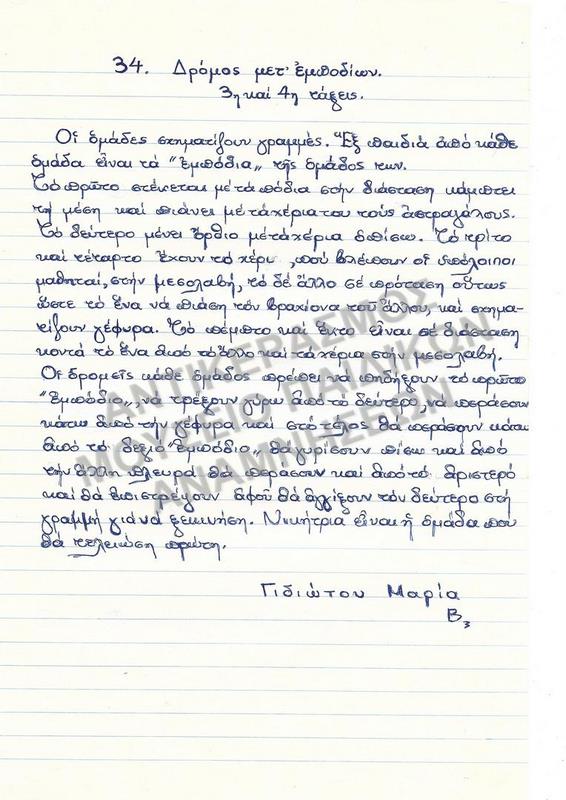 34. Δρόμος μετ' ἐμποδίων.
3η καί 4η τάξεις.
Οἱ ὁμάδες σχηματίζουν γραμμές. Ἕξ παιδιά ἀπό κάθε
ὁμάδα εἶναι τά "ἐμπόδια„ τῆς ὁμάδος των.
Τό πρῶτο στέκεται μέ τά πόδια στήν διάσταση κάμπτει
τή μέση καί πιάνει μέ τά χέρια του τούς ἀστραγάλους.
Τό δεύτερο μένει ὄρθιο μέ τά χέρια ὀπίσω. Τό τρίτο
καί τέταρτο ἔχουν τό χέρι, πού βλέπουν οἱ ὑπόλοιποι
μαθηταί, στήν μεσολαβή, τό δέ ἄλλο σέ πρόταση οὕτως
ὥστε τό ἕνα νά πιάση τόν βραχίονα τοῦ ἄλλου, καί σχημα-
τίζουν γέφυρα. Τό πέμπτο καί ἕκτο εἶναι σέ διάσταση
κοντά τό ἕνα ἀπό τό ἄλλο καί τά χέρια στήν μεσολαβή.
Οἱ δρομεῖς κάθε ὁμάδος πρέπει νά πηδήξουν τό πρῶτο
"ἐμπόδιο„, νά τρέξουν γύρω ἀπό τό δεύτερο, νά περάσουν
κάτω ἀπό τήν γέφυρα καί στό τέλος θά περάσουν κάτω
ἀπό τό δεξιό "ἐμπόδιο„ θά γυρίσουν πίσω καί ἀπό
τήν ἄλλη πλευρά θά περάσουν καί ἀπό τό ἀριστερό
καί θά ἐπιστρέψουν ἀφοῦ θά ἀγγίξουν τόν δεύτερο στή
γραμμή γιά νά ξεκινήση. Νικήτρια εἶναι ἡ ὁμάδα που
θά τελειώση πρώτη.
Γιδιώτου Μαρία
Β3
ΑΝΤΙΚΕΡΑΣΜΟΣ
ΜΟΥΣΕΙΟ ΠΑΙΔΙΚΩΝ
ΑΝΑΜΝΗΣΕΩΝ